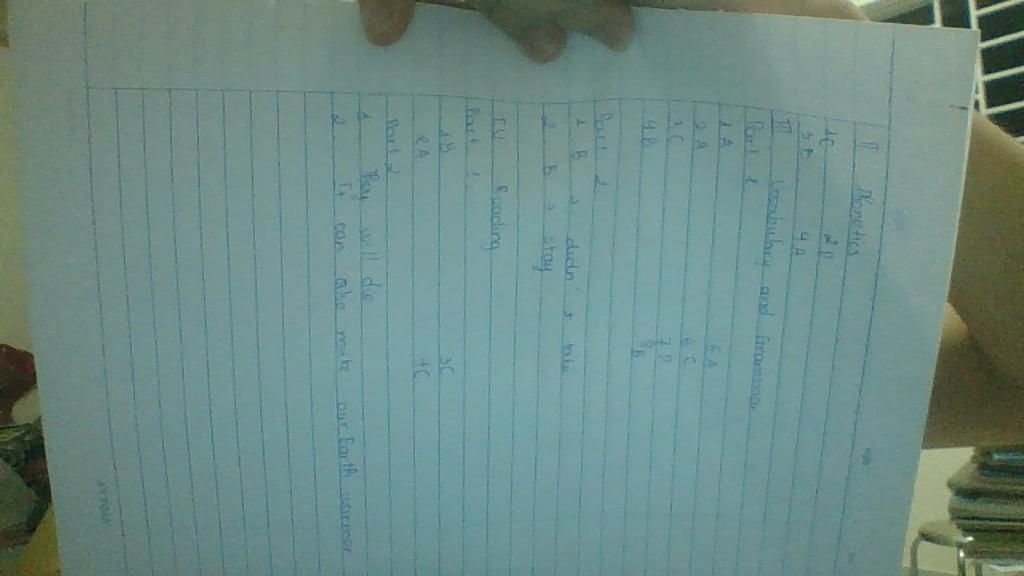 II Phonetics
1C 2D
3B 4A
III Vocabulary and Grammar
Part 1
1A 5A
2A 6C
3C 7D
4B 8B
Part 2
1 B → didn't take
2 B → stay
IV Reading
Part 1
1B 3C
2A 4C
Part 2
1 They will die
2 It can also make our Earth warmer